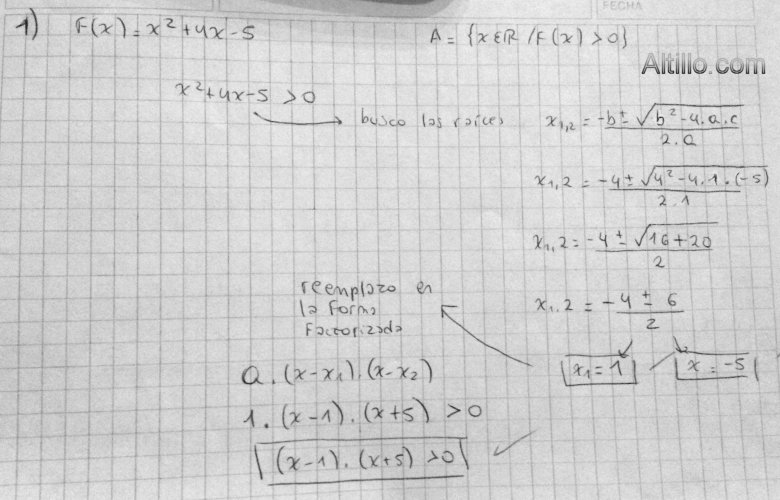 FECHA
1) F(x) = x² + 4x - 5
A = {x ∈ ℝ / F(x) > 0}
Altillo.com
x² + 4x - 5 > 0
busco las raíces
x₁,₂ = (-b ± √(b² - 4.a.c)) / 2.a
x₁,₂ = (-4 ± √(4² - 4.1.(-5))) / 2.1
x₁,₂ = (-4 ± √(16 + 20)) / 2
x₁,₂ = (-4 ± 6) / 2
x₁ = 1
x = -5
reemplazo en
la forma
Factorizada
a.(x-x₁).(x-x₂)
1.(x-1).(x+5) > 0
(x-1).(x+5) > 0